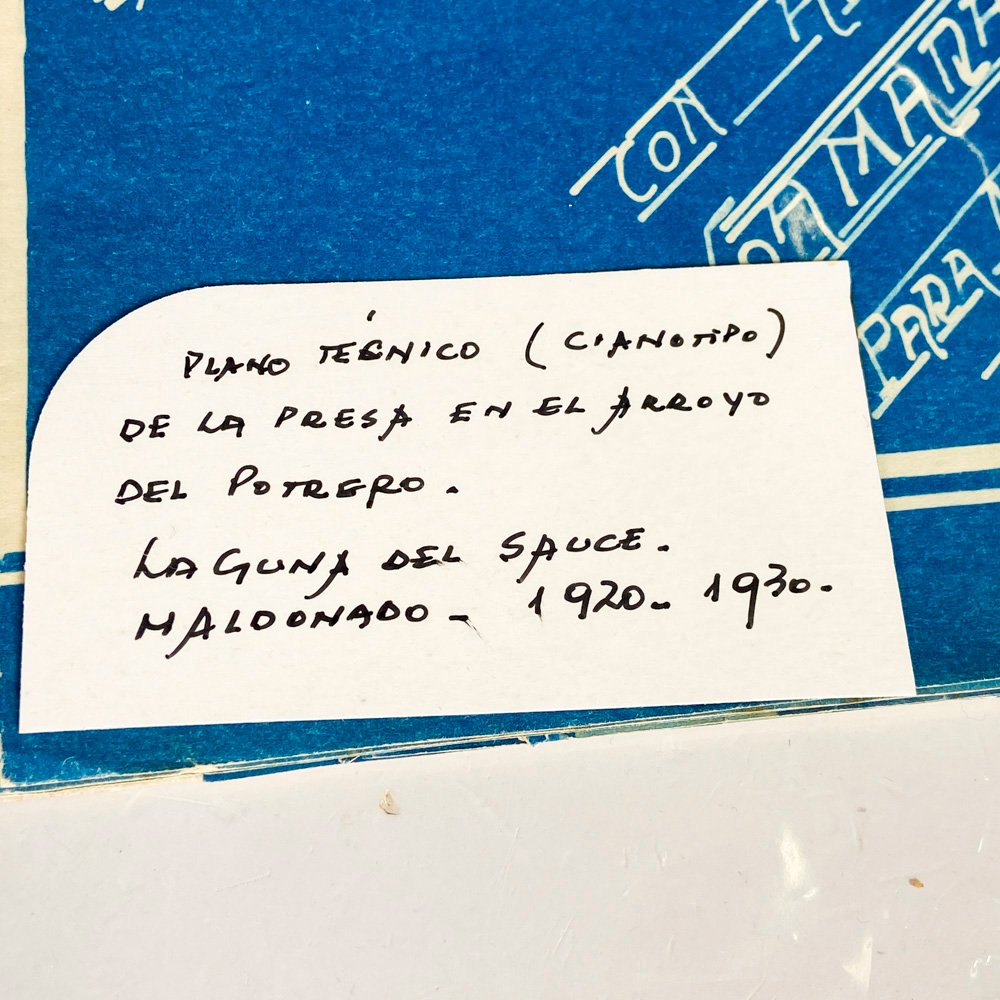 CON
CAMARA
PARA
PLANO TÉCNICO (CIANOTIPO)
DE LA PRESA EN EL ARROYO
DEL POTRERO.
LAGUNA DEL SAUCE.
MALDONADO - 1920 - 1930.